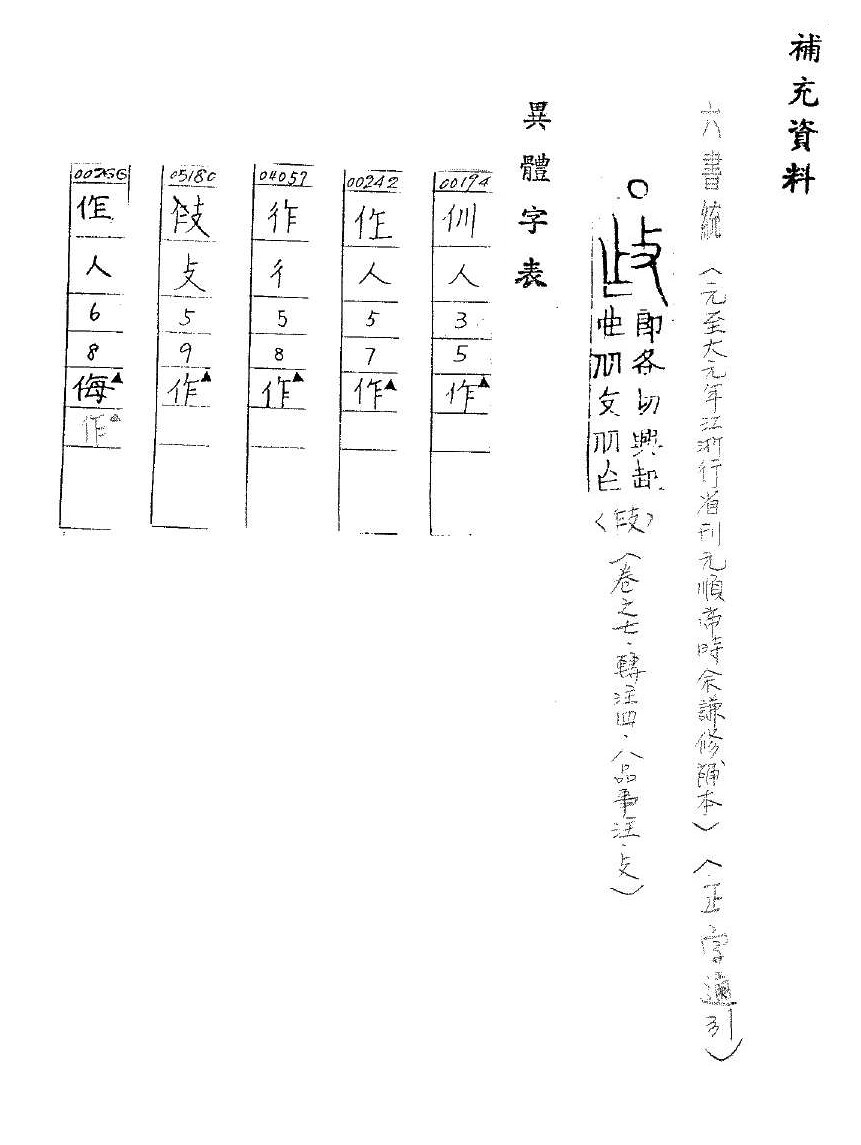 補充資料
六書統(元至大元年江浙行省刊元順帝時余謙修補本)(正字通引)
即各切興起
也从攴从亾
(卷之七·轉注四·八品事注·攴)
異體字表
00194
人
3
5
作▲
00242
人
5
7
作▲
04057
彳
5
8
作▲
05180
攴
5
9
作▲
人
6
8
侮▲
作